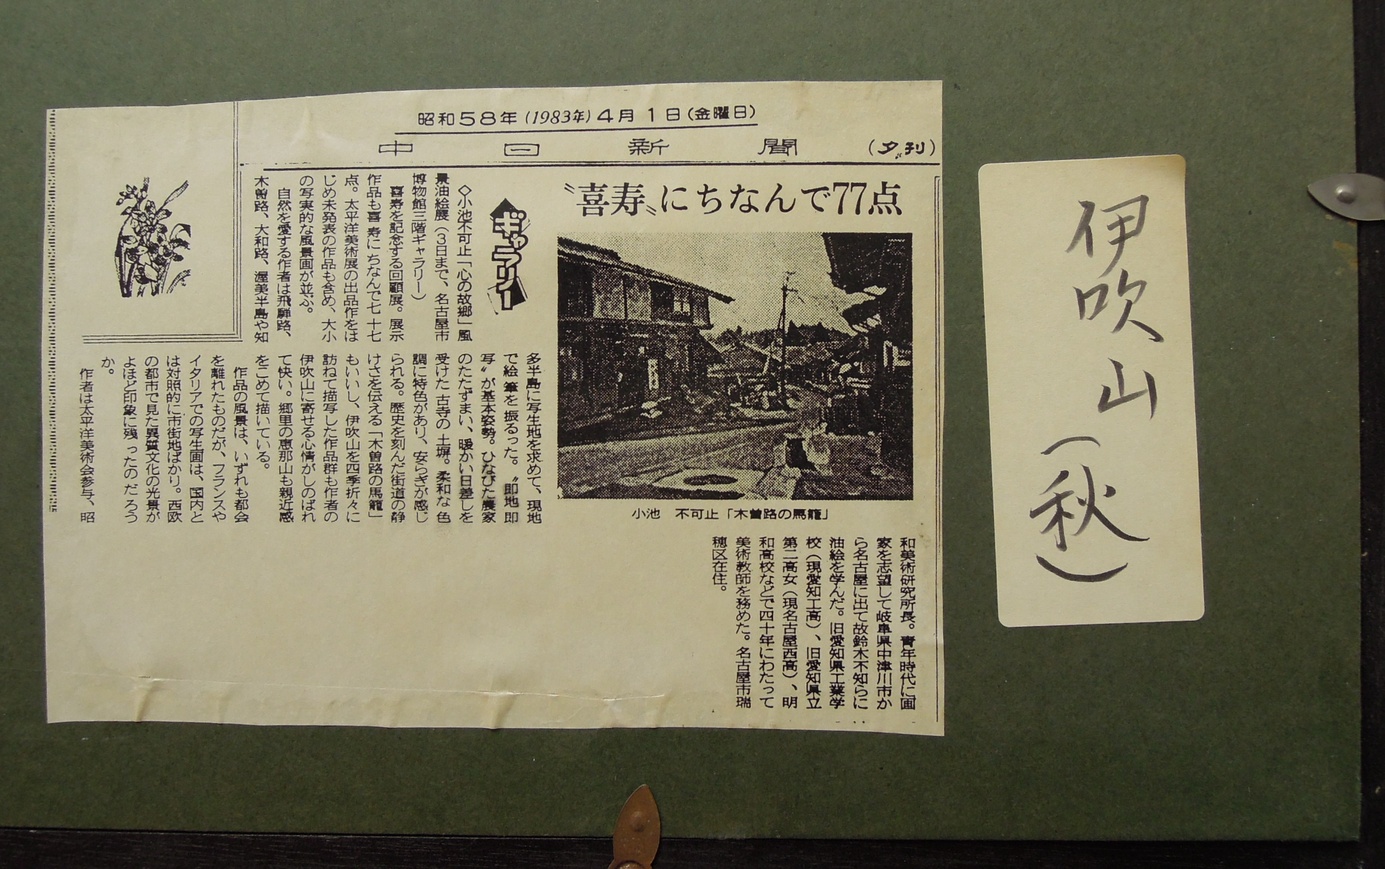 昭和58年(1983年)4月1日(金曜日)
中日新聞
(夕刊)
〝喜寿〟にちなんで77点
ギャラリー
◇小池不可止「心の故郷」風
景油絵展(3日まで、名古屋市
博物館三階ギャラリー)
喜寿を記念する回顧展。展示
作品も喜寿にちなんで七十七
点。太平洋美術展の出品作をは
じめ未発表の作品も含め、大小
の写実的な風景画が並ぶ。
自然を愛する作者は飛騨路、
木曽路、大和路、渥美半島や知
多半島に写生地を求めて、現地
で絵筆を振るった。〝即地即
写〟が基本姿勢。ひなびた農家
のたたずまい、暖かい日差しを
受けた古寺の土塀。柔和な色
調に特色があり、安らぎが感じ
られる。歴史を刻んだ街道の静
けさを伝える「木曽路の馬籠」
もいいし、伊吹山を四季折々に
訪ねて描写した作品群も作者の
伊吹山に寄せる心情がしのばれ
て快い。郷里の恵那山も親近感
をこめて描いている。
作品の風景は、いずれも都会
を離れたものだが、フランスや
イタリアでの写生画は、国内と
は対照的に市街地ばかり。西欧
の都市で見た異質文化の光景が
よほど印象に残ったのだろう
か。
作者は太平洋美術会参与、昭
和美術研究所長。青年時代に画
家を志望して岐阜県中津川市か
ら名古屋に出て故鈴木不知らに
油絵を学んだ。旧愛知県工業学
校(現愛知工高)、旧愛知県立
第二高女(現名古屋西高)、明
和高校などで四十年にわたって
美術教師を務めた。名古屋市瑞
穂区在住。
小池 不可止「木曽路の馬籠」
伊吹山(秋)